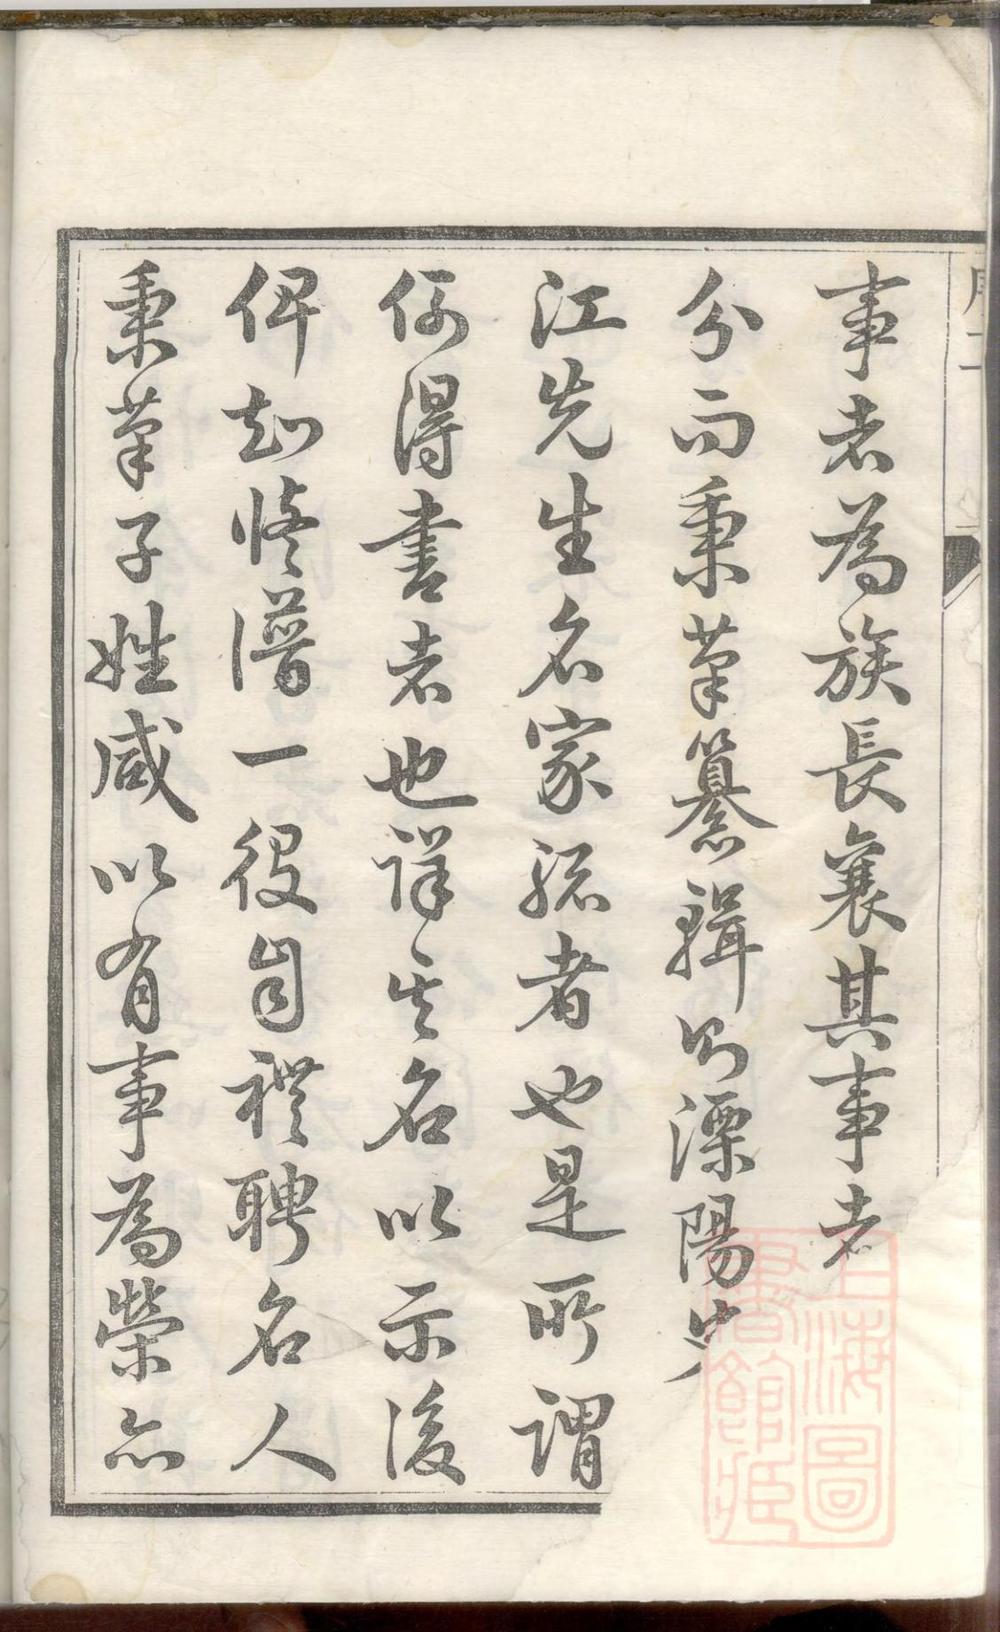 序二
事者為族長襄其事者
分而秉筆纂輯則溧陽史
江先生名家者也是所謂
例得書者也詳其名以示後
俾知修譜一役禮聘名人
秉筆子姓咸以有事為榮亦
上海圖
書館藏